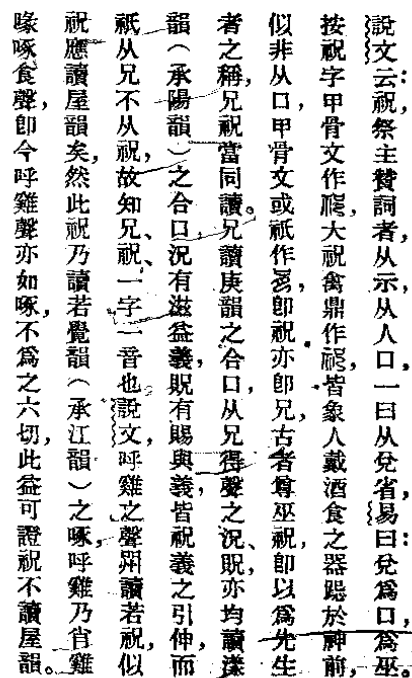 說文云：祝，祭主贊詞者，从示，从人口，一曰从兌省，易曰：兌爲口，爲巫。
按祝字甲骨文作，大祝禽鼎作，皆象人戴酒食之器跽於神前，
似非从口，甲骨文或祇作，卽祝亦卽兄，古者尊巫祝，卽以爲先生
者之稱，兄祝當同讀。兄讀庚韻之合口，从兄得聲之況、貺，亦均讀漾
韻（承陽韻）之合口，況有滋益義，貺有賜與義，皆祝義之引伸，而
祇从兄不从祝，故知兄、祝、一字一音也說文，呼雞之聲喌讀若祝，似
祝應讀屋韻矣，然此祝乃讀若覺韻（承江韻）之啄，呼雞乃肖雞
喙啄食聲，卽今呼雞聲亦如啄，不爲之六切，此益可證祝不讀屋韻。